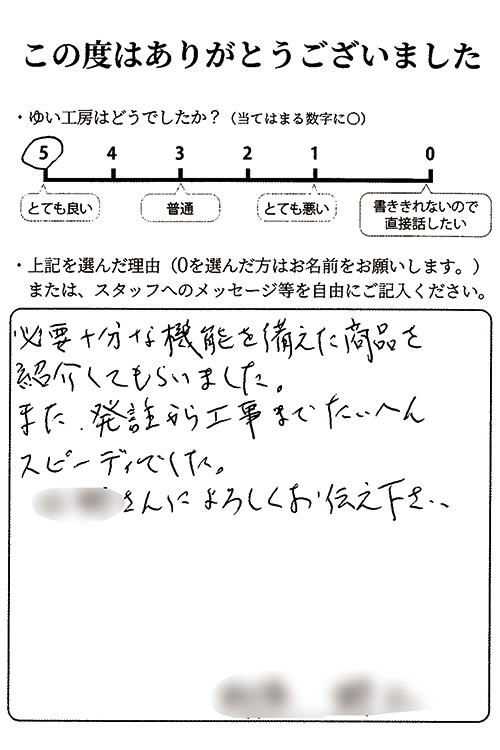 この度はありがとうございました
・ゆい工房はどうでしたか？（当てはまる数字に○）
5 4 3 2 1 0
とても良い 普通 とても悪い 書ききれないので
直接話したい
・上記を選んだ理由（0を選んだ方はお名前をお願いします。）
または、スタッフへのメッセージ等を自由にご記入ください。
必要十分な機能を備えた商品を
紹介してもらいました。
また、発注から工事までたいへん
スピーディでした。
さんによろしくお伝え下さい。